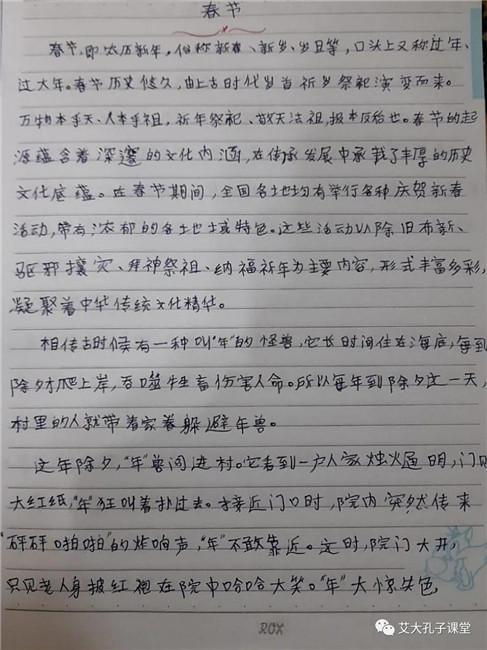 春节
春节,即农历新年,俗称新春、新岁、岁旦等,口头上又称过年、
过大年。春节历史悠久,由上古时代岁首祈岁祭祀演变而来。
万物本乎天、人本乎祖,祈年祭祀、敬天法祖,报本反始也。春节的起
源蕴含着深邃的文化内涵,在传承发展中承载了丰厚的历史
文化底蕴。在春节期间,全国各地均有举行各种庆贺新春
活动,带有浓郁的各地土域特色。这些活动以除旧布新、
驱邪攘灾、拜神祭祖、纳福祈年为主要内容,形式丰富多彩,
凝聚着中华传统文化精华。
相传古时候有一种叫“年”的怪兽,它长时间住在海底,每到
除夕才爬上岸,吞噬牲畜伤害人命。所以每年到除夕这一天,
村里的人就带着家眷躲避年兽。
这年除夕,“年”兽闯进村。它看到一户人家烛火通明,门贴
大红纸,“年”狂叫着扑过去。接近门口时,院内突然传来
“砰砰啪啪”的炸响声,“年”不敢靠近。这时,院门大开,
只见老人身披红袍在院中哈哈大笑。“年”大惊失色
艾大孔子课堂